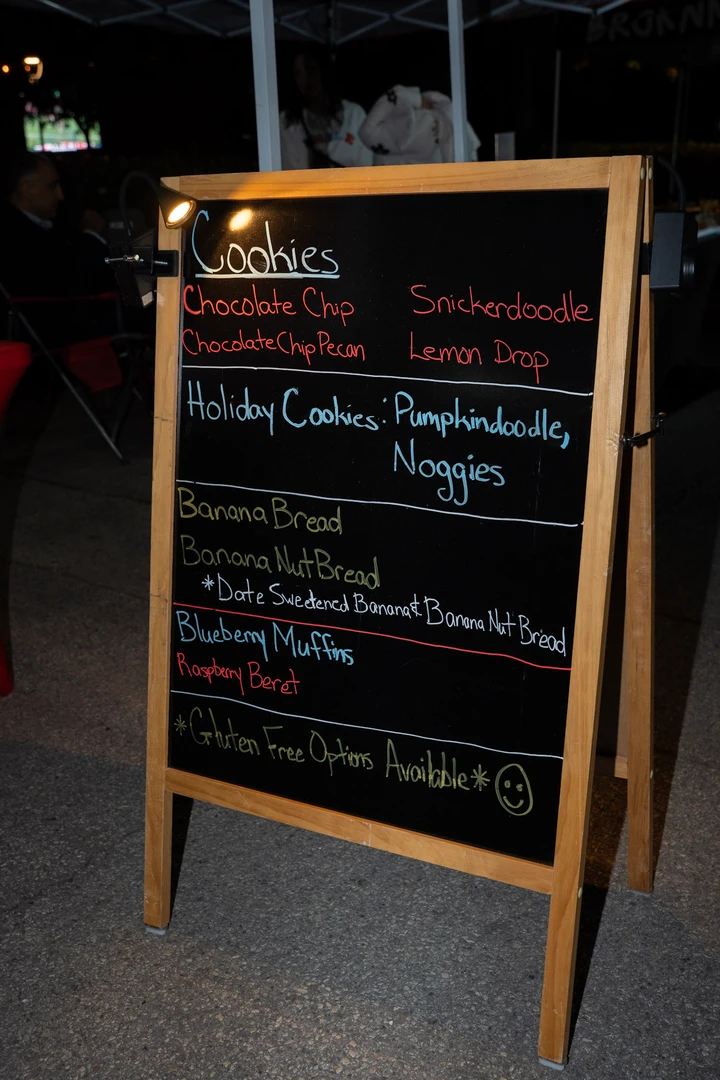 Cookies
Chocolate Chip Snickerdoodle
Chocolate Chip Pecan Lemon Drop
Holiday Cookies: Pumpkindoodle,
Noggies
Banana Bread
Banana Nut Bread
*Date Sweetened Banana & Banana Nut Bread
Blueberry Muffins
Raspberry Beret
*Gluten Free Options Available*